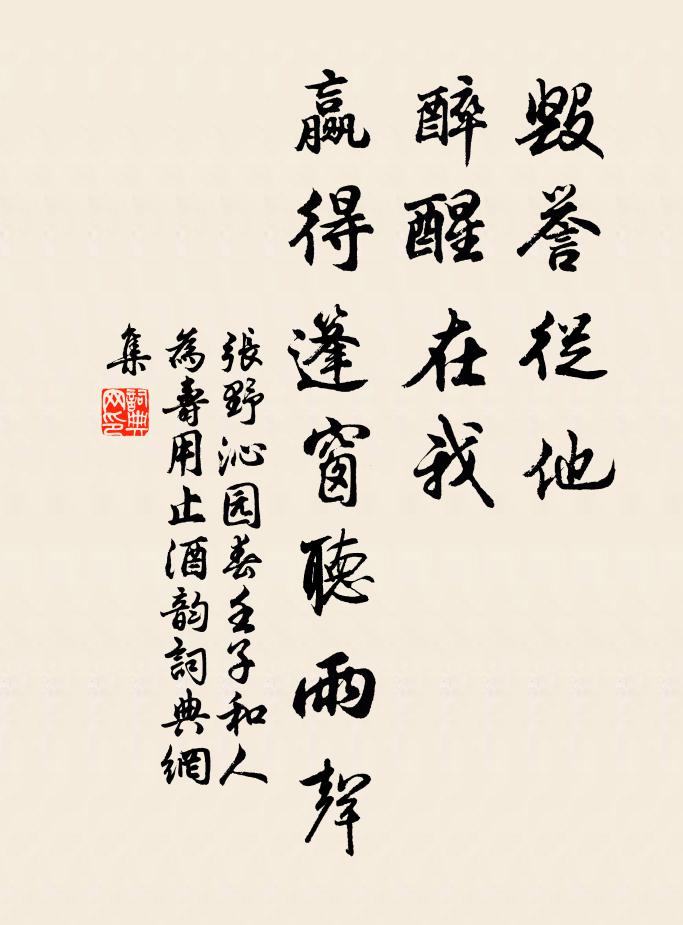 毀譽從他
醉醒在我
贏得蓬窗聽雨聲
張野沁园春壬子和人
為壽用止酒韵詞典網
集
詞典
网印